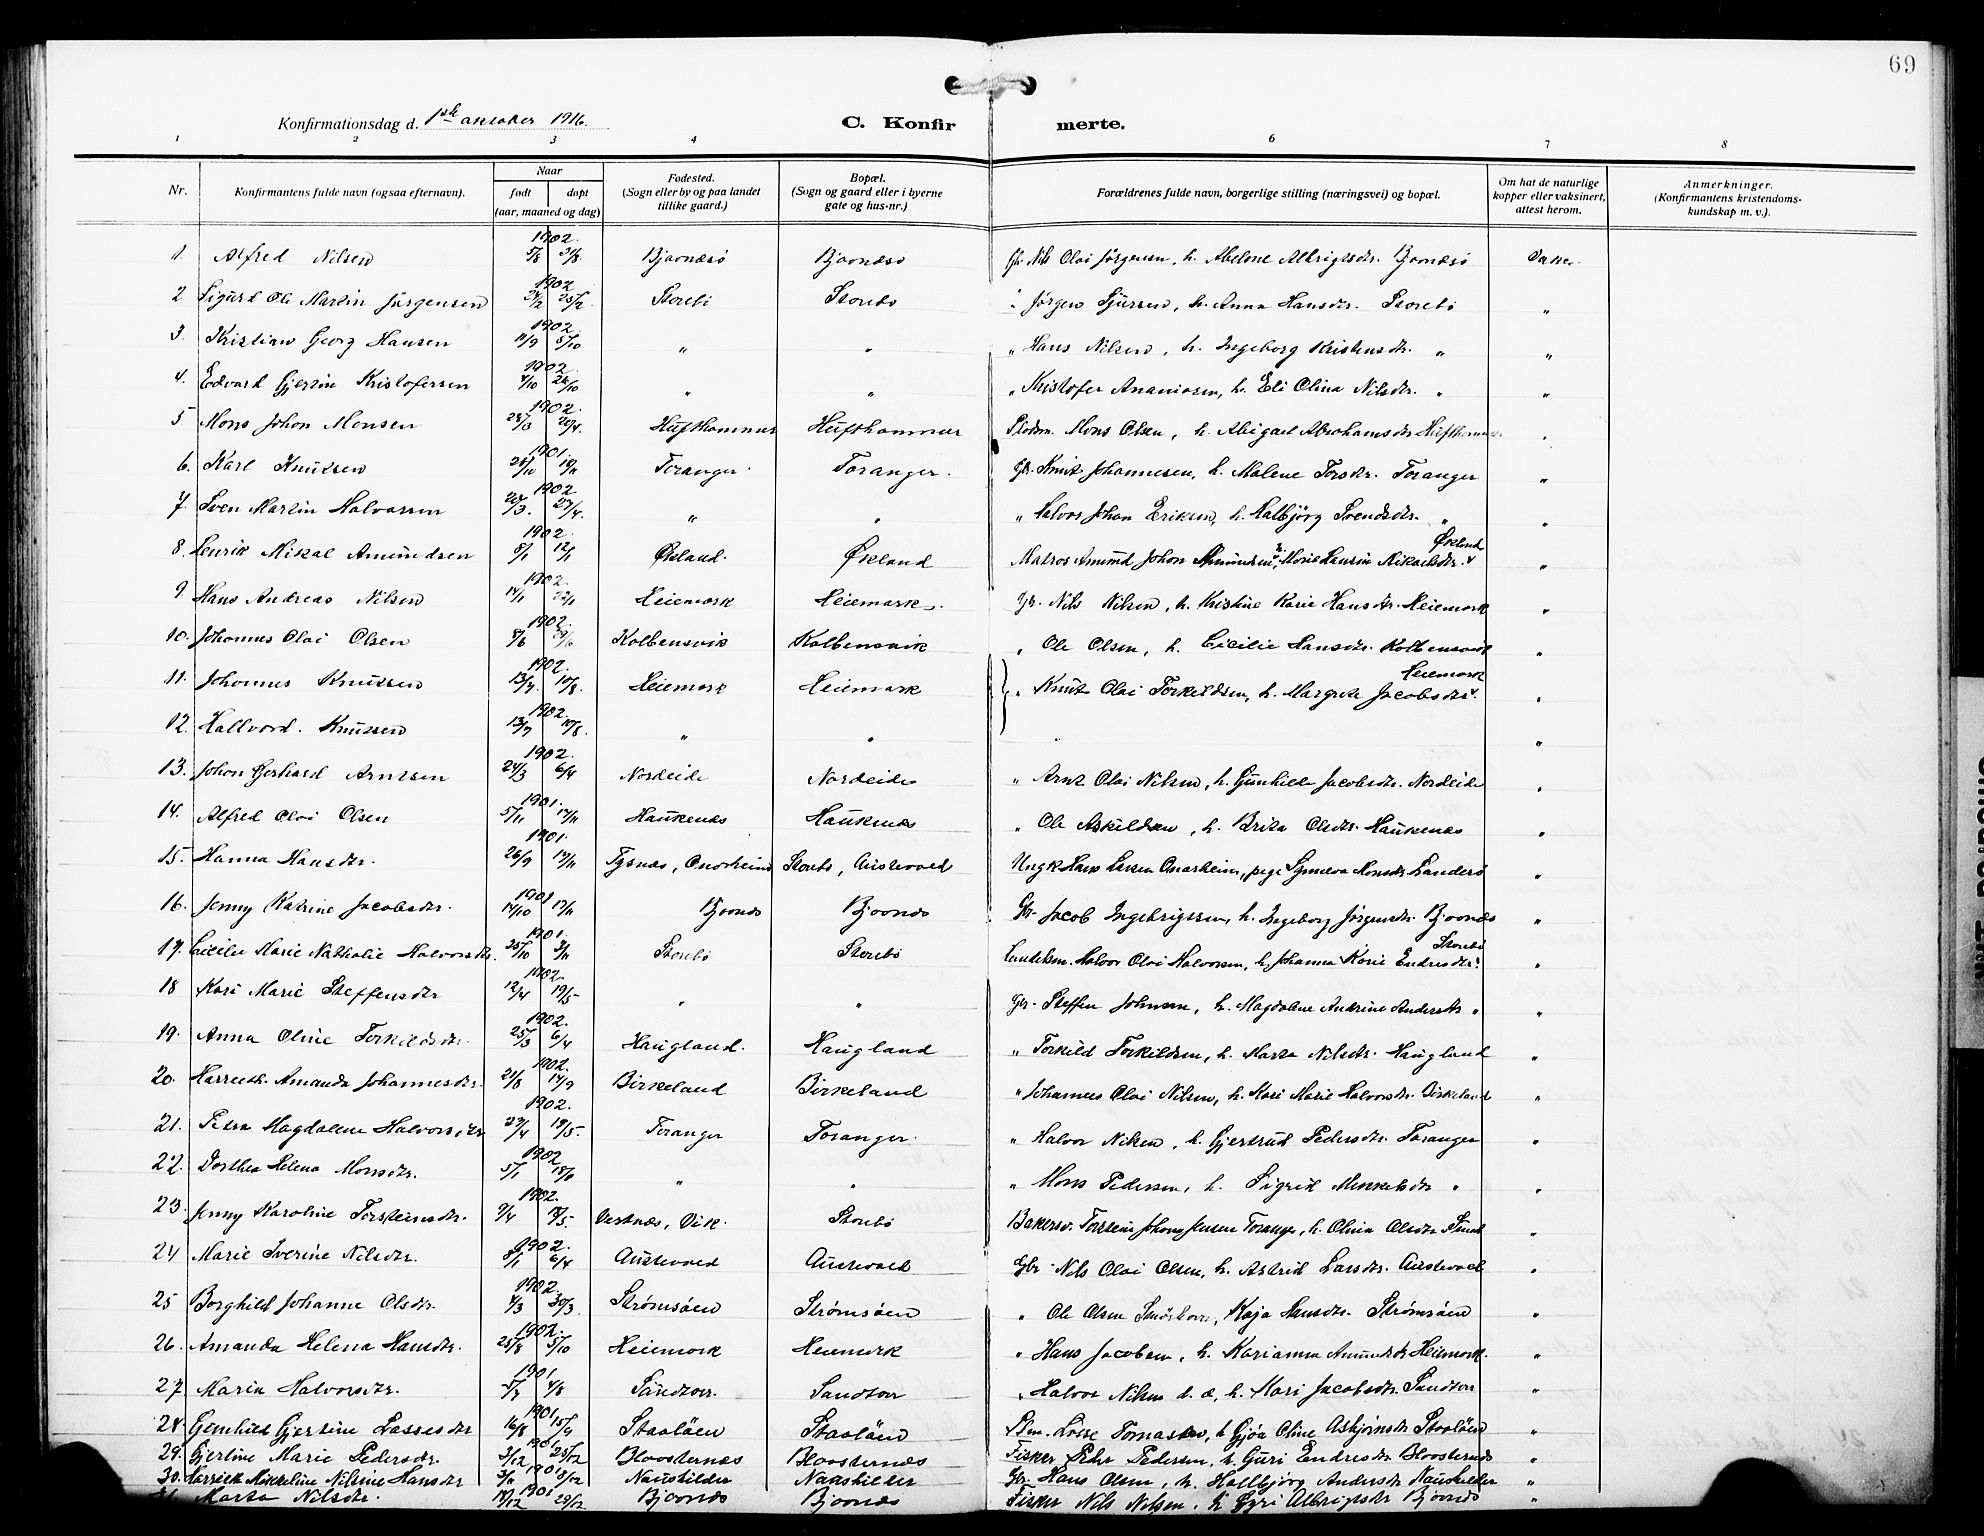 69
Konfirmationsdag d. 1ste oktober 1916. C. Konfirmerte.
1 2 3 4 5 6 7 8
Nr. Konfirmantens fulde navn (ogsaa efternavn). Naar født døpt (aar, maaned og dag) Fødested. (Sogn eller by og paa landet tillike gaard.) Bopæl. (Sogn og gaard eller i byerne gate og hus-nr.) Forældrenes fulde navn, borgerlige stilling (næringsvei) og bopæl. Om hat de naturlige kopper eller vaksinert, attest herom. Anmerkninger. (Konfirmantens kristendomskundskap m. v.).
1. Alfred Nilsen 1902 5/8 31/8 Bjoonæsø Bjoonæsø Gbr. Nils Olai Jørgensen, h. Abelone Albrigtsdtr. Bjoonæsø
2 Sigurd Ole Martin Jørgensen 1902 Storebø Storebø " Jørgen Sjursen, h. Anna Hansdtr. Storebø "
3. Kristian Georg Hansen 1902. 11/9 5/10 " " " Hans Nilsen, h. Ingeborg Kristensdtr. " "
4. Edvard Gjertin Kristofersen 1902. 4/10 26/10 " " " Kristofer Ananiasen, h. Eli Olina Nilsdtr. " "
5 Mons Johan Monsen 1902. 23/3 20/4. Hufthammer Hufthammer Mons Olsen, h. Abigael Abrahamsdtr Hufthammer "
6. Karl Knutsen 1901. Toranger. Toranger. Gbr. Knut Johannesen, h. Malene Torsdtr. Toranger "
7. Sven Martin Halvorsen 1902 27/4. " " " Halvor Johan Eriksen, h. Halbjørg Svendsdtr. " "
8. Henrik Mikal Amundsen 1902. 8/1 12/1 Økland. Økland Matros Amund Johan Amundsen, h. Marie Hansin Mikaelsdtr. Økland "
9. Hans Andreas Nilsen 1902. 14/1 22/1 Heiemark Heiemark. Gbr. Nils Nilsen, h. Kristine Karie Hansdtr. Heiemark "
10. Johannes Olai Olsen 1902. 8/6 29/6 Kolbensvik Kolbensvik " Ole Olsen, h. Cicilie Hansdtr. Kolbensvik "
11. Johannes Knutsen 1902. 13/7. 10/8. Heiemark Heiemark " Knut Olai Torkildsen, h. Margrete Jacobsdtr. Heiemark "
12. Hallvord. Knutsen 1902. 13/7 10/8. " " " "
13. Johan Gerhard Arntsen 1902. 24/3 6/4 Nordeide Nordeide " Arnt Olai Nilsen, h. Gunhilde Jacobsdtr. Nordeide "
14. Alfred Olai Olsen 1901. 5/11 17/11 Haukenæs Haukenæs " Ole Askildsen, h. Brita Olsdtr. Haukenæs "
15. Hanna Hansdtr. 1901. 26/9 17/11 Tysnæs, Onarheim Storebø, Austevold Ungk Hans Larsen Onarheim, pige Synneva Monsdtr. "
16. Jenny Katrine Jacobsdtr. 1901 14/10 17/11 Bjoonæs Bjoonæs Gbr. Jacob Ingebrigtsen, h. Ingeborg Jørgensdtr. Bjoonæs "
17. Cicilie Marie Nathalie Halvorsdtr. 1901. 25/10 3/11 Storebø Storebø Landhdm. Halvor Olai Halvorsen, h. Johanna Karie Endresdtr. Storebø "
18 Kari Marie Steffensdtr 1902. 12/4 19/5 " " Gbr. Steffen Johnsen, h. Magdalene Andrine Andersdtr " "
19. Anna Oline Torkildsdtr. 1902. 25/3 6/4 Haugland. Haugland " Torkild Torkildsen, h. Marta Nilsdtr. Haugland "
20. Amanda Johannesdtr. 1902. 21/8 14/9 Birkeland Birkeland " Johannes Olai Nilsen, h. Kari Marie Halvorsdtr. Birkeland "
21. Petra Magdalene Halvorsdtr 1902. 27/4 19/5. Toranger Toranger. " Halvor Nilsen, h. Gjertrud Pedersdtr. Toranger "
22. Dorthea Helena Monsdtr. 1902. 5/1 " " " Mons Pedersen, h. Sigrid Mikkelsdtr " "
23. Jenny Karoline Torsteinsdtr. 1902. 9/4 18/5. Vestnæs, Vik. Storebø Bakersv. Torstein Johan Jensen Toranger, h. Olina Olsdtr "
24 Marie Iverine Nilsdtr. 1902. 8/1 6/4 Austevold Austevold Gbr. Nils Olai Olsen, h. Astrid Larsdtr. Austevold "
25 Borghild Johanne Olsdtr. 1902. 4/3 30/3. Strømsøen Strømsøen " Ole Olsen, Kaja Hansdtr. Strømsøen "
26. Amanda Helena Hansdtr. 1902. 25/8 5/10 Heiemork Heiemork " Hans Jacobsen, h. Karianna Amundsdtr Heiemork. "
27 Maria Halvorsdtr. 1901 5/7 4/8 Sandtorv. Sandtorv " Halvor Nilsen d. æ, h. Mari Jacobsdtr. Sandtorv "
28. Gunhild Gjertine Lassesdtr 1901 16/8 15/9 Staaløen Staaløen Lasse Tomassen, h Gjøa Oline Asbjørnsdtr Staaløen "
29. Gjertine Marie Pedersdtr. 1901 3/12 25/12 Bloosternæs Bloosternæs Fisker Pehr Pedersen, h. Guri Endresdtr Bloosternæs "
30. Mikkeline Nilsine Hansdtr 1901 Naushilder Nakshilder Gbr. Hans Olsen, h. Halbjørg Andersdtr Naushilder "
31. Marta Nilsdtr. 1901 29/12 Bjoonæs Bjoonæs Fisker Nils Nilsen, h Gyri Albrigtsdtr Bjoonæs "